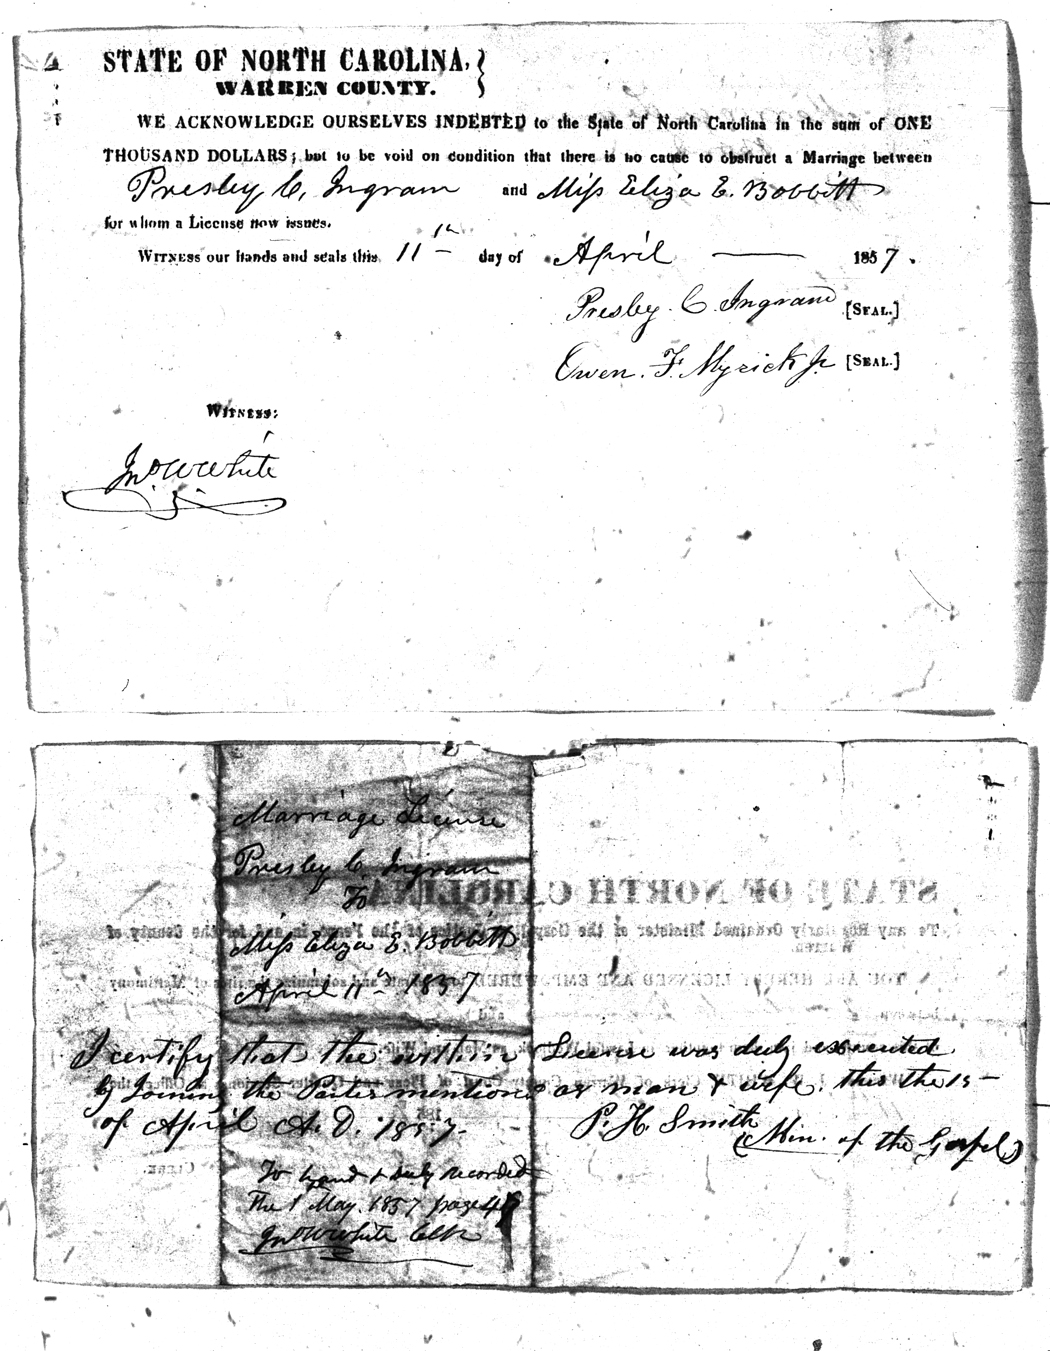 STATE OF NORTH CAROLINA,
WARREN COUNTY.
WE ACKNOWLEDGE OURSELVES INDEBTED to the State of North Carolina in the sum of ONE
THOUSAND DOLLARS; but to be void on condition that there is no cause to obstruct a Marriage between
Presley C. Ingram and Miss Eliza E. Bobbitt
for whom a License now issues.
WITNESS our hands and seals this 11th day of April 1857.
Presley C. Ingram [SEAL.]
Owen. F. Myrick Jr [SEAL.]
WITNESS:
Jno W White
Marriage License
Presley C. Ingram
To
Miss Eliza E. Bobbitt
April 11th 1857
STATE OF NORTH CAROLINA
To any Regularly Ordained Minister of the Gospel of the Peace in and for the County of
Warren.
YOU ARE HEREBY LICENSED AND EMPOWERED to of Matrimony
and
I certify that the within License was duly executed
by Joining the Parties mentioned as man & wife. this the 15
of April A.D. 1857.
P. H. Smith
(Min. of the Gospel)
CLERK.
To hand & duly recorded
The 1 May. 1857 page
Jno W White Clk